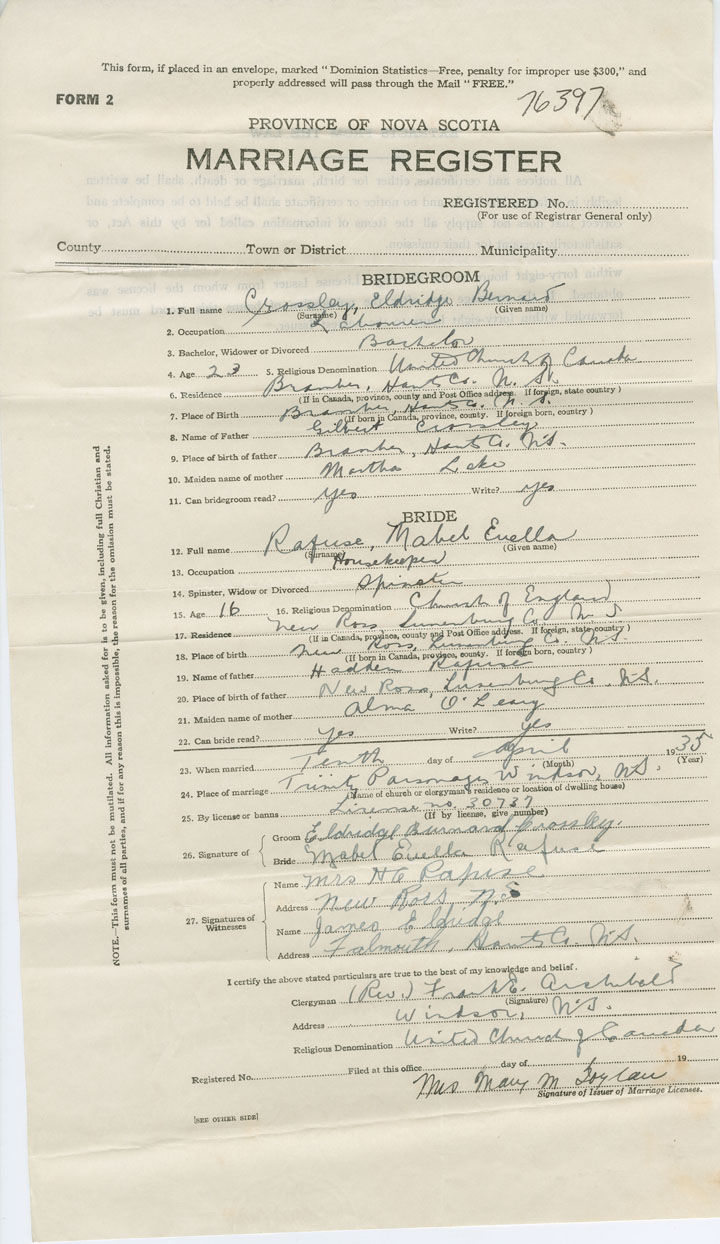 This form, if placed in an envelope, marked "Dominion Statistics—Free, penalty for improper use $300," and
properly addressed will pass through the Mail "FREE."
FORM 2
76397
PROVINCE OF NOVA SCOTIA
MARRIAGE REGISTER
REGISTERED No.
(For use of Registrar General only)
County Town or District Municipality
BRIDEGROOM
1. Full name Crossley, Eldridge Bernard
(Surname) (Given name)
2. Occupation Labourer
3. Bachelor, Widower or Divorced Bachelor
4. Age 23 5. Religious Denomination United Church of Canada
6. Residence Bramber, Hants Co. N. S.
(If in Canada, province, county and Post Office address. If foreign, state country)
7. Place of Birth Bramber, Hants Co. N. S.
(If born in Canada, province, county. If foreign born, country)
8. Name of Father Gilbert Crossley
9. Place of birth of father Bramber, Hants Co. N.S.
10. Maiden name of mother Martha Lake
11. Can bridegroom read? yes Write? yes
BRIDE
12. Full name Rafuse, Mabel Euella
(Surname) (Given name)
13. Occupation Housekeeper
14. Spinster, Widow or Divorced Spinster
15. Age 16 16. Religious Denomination Church of England
17. Residence New Ross Lunenburg Co. N. S
(If in Canada, province, county and Post Office address. If foreign, state country)
18. Place of birth New Ross, Lunenburg Co. N.S.
(If born in Canada, province, county. If foreign born, country)
19. Name of father Hadden Rafuse
20. Place of birth of father New Ross, Lunenburg Co. N.S.
21. Maiden name of mother Alma O'Leary
22. Can bride read? Yes Write? yes
23. When married Tenth day of April 1935
(Month) (Year)
24. Place of marriage Trinity Parsonage Windsor, N.S.
(Name of church or clergyman's residence or location of dwelling house)
25. By license or banns License no. 30737
(If by license, give number)
26. Signature of Groom Eldridge Burnard Crossley.
Bride Mabel Euella Rafuse
27. Signatures of Witnesses
Name Mrs H E Rafuse
Address New Ross N.S
Name James Eldridge
Address Falmouth, Hants Co. N.S.
I certify the above stated particulars are true to the best of my knowledge and belief.
Clergyman (Rev.) Frank E. Archibald
(Signature)
Address Windsor, N.S.
Religious Denomination United Church of Canada
Registered No. Filed at this office day of 19
Mrs Mary M
Signature of Issuer of Marriage Licenses.
[SEE OTHER SIDE]
NOTE.—This form must not be mutilated. All information asked for is to be given, including full Christian and
surnames of all parties, and if for any reason this is impossible, the reason for the omission must be stated.